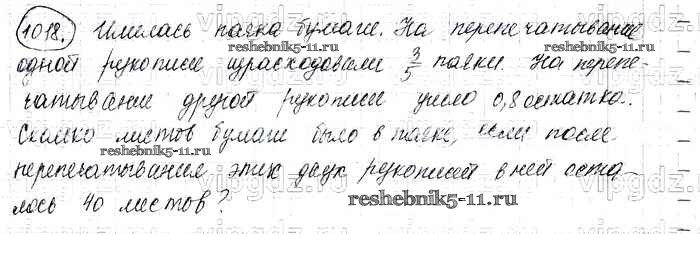 1018. Имелась пачка бумаги. На перепечатывание
reshebnik5-11.ru
одной рукописи израсходовали 3/5 пачки. На перепе-
чатывание другой рукописи ушло 0,8 остатка.
Сколько листов бумаги было в пачке, если после
reshebnik5-11.ru
перепечатывания этих двух рукописей в ней оста-
лось 40 листов?
reshebnik5-11.ru